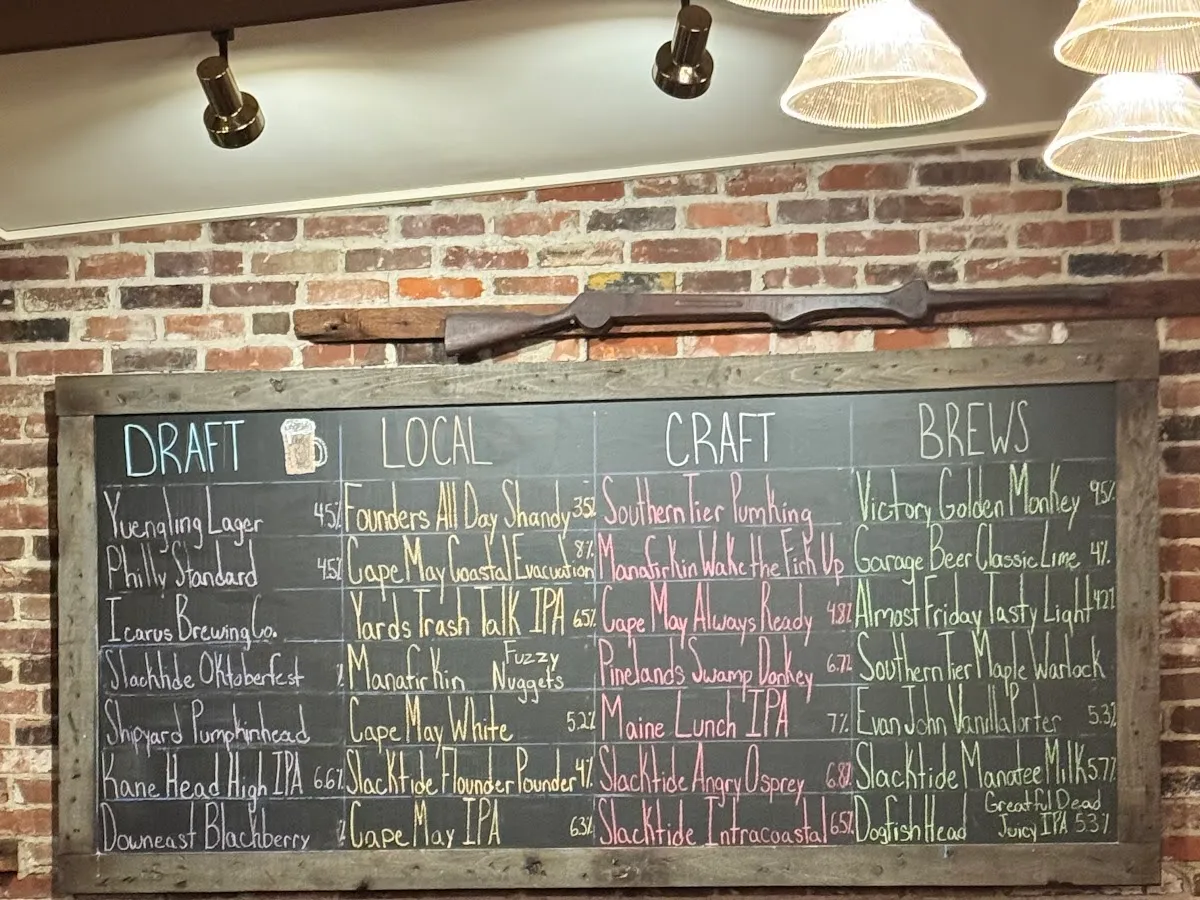 DRAFT
Yuengling Lager 4.5%
Philly Standard 4.5%
Icarus Brewing Co.
Slacktide Oktoberfest %
Shipyard Pumpkinhead
Kane Head High IPA 6.6%
Downeast Blackberry %
LOCAL
Founders All Day Shandy 3.5%
Cape May Coastal Evacuation 8%
Yards Trash Talk IPA 6.5%
Manafirkin Fuzzy
Nuggets
Cape May White 5.2%
Slacktide Flounder Pounder 4%
Cape May IPA 6.3%
CRAFT
Southern Tier Pumking
Manafirkin Wake the Firk Up
Cape May Always Ready 4.8%
Pinelands Swamp Donkey 6.7%
Maine Lunch IPA 7%
Slacktide Angry Osprey 6.8%
Slacktide Intracoastal 6.5%
BREWS
Victory Golden Monkey 9.5%
Garage Beer Classic Lime 4%
Almost Friday Tasty Light 4.2%
Southern Tier Maple Warlock
Evan John Vanilla Porter 5.3%
Slacktide Manatee Milk 5.7%
Dogfish Head Greatful Dead
Juicy IPA 5.3%